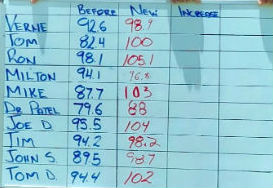 BEFORE NEW INCREASE
VERNE 92.6 98.9
TOM 82.4 100
RON 98.1 105.1
MILTON 94.1 96.8
MIKE 87.7 103
DR PATEL 79.6 88
JOE D 95.5 104
TIM 94.2 98.2
JOHN S. 89.5 98.7
TOM D. 94.4 102